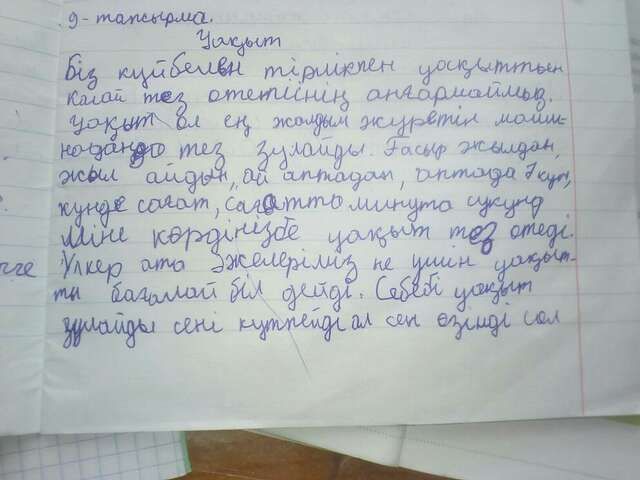 9-тапсырма.
Уақыт
Біз күйбелең тірлікпен уақыттың
қалай тез өтетінің аңғармаймыз.
Уақыт ол ең жолдым жүретін маши-
надандә тез зулайды. Ғасыр жылдан,
жыл айдан, ай аптадан, аптада 7 күн,
күнде сағат, сағатта минута сукунд
Міне көрдіңізбе уақыт тез өтеді.
Үлкер ата әжелеріміз не үшін уақыт-
ты бағалай біл дейді. Себебі уақыт
зулайды сені күтпейді ал сен өзіңді сол